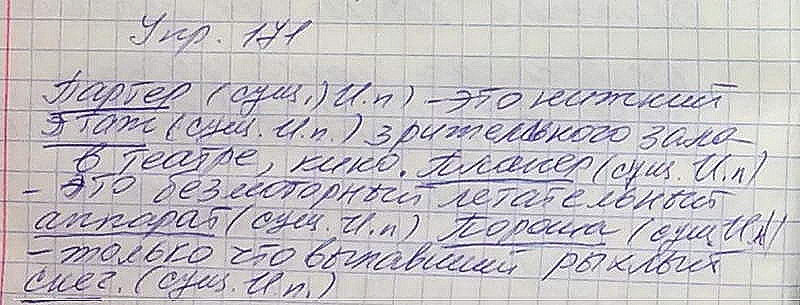 Упр. 171
Партер (сущ.) И.п) - это нижний
этаж (сущ. И.п.) зрительного зала
в театре, кино. Планер (сущ. И.п)
- это безмоторный летательный
аппарат (сущ. И.п) Пороша (сущ И.п)
- только что выпавший рыхлый
снег. (сущ. И.п.)